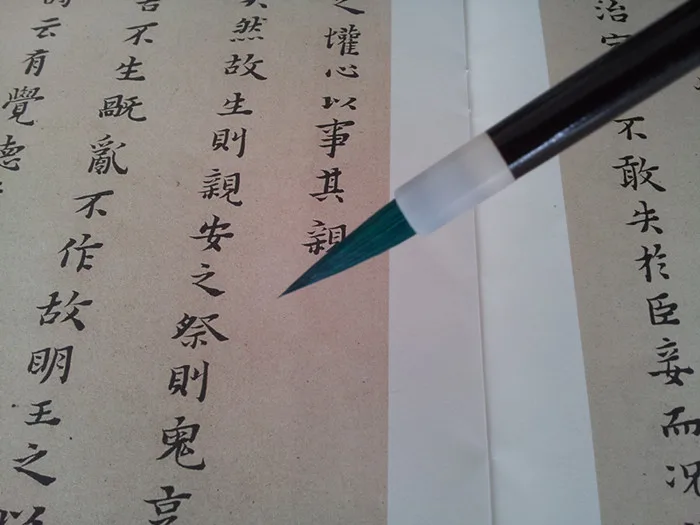 治不敢失於臣妾而況
之懽心以事其親
然故生則親安之祭則鬼享
害不生旤亂不作故明王之以
云有覺德